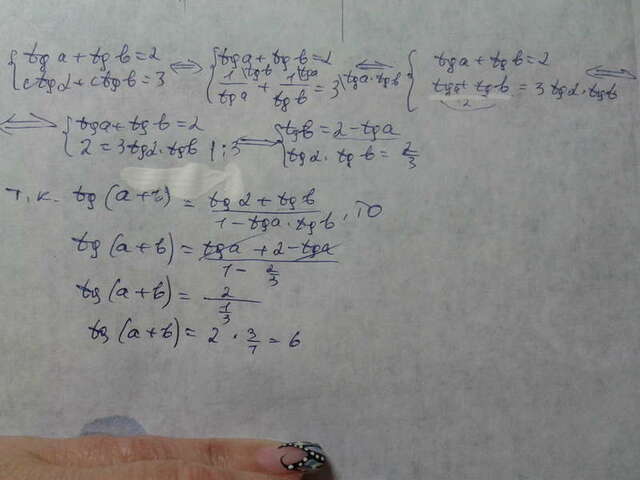 { tg a + tg b = 2 ⟺ { tg a + tg b = 2 ⟺ { tg a + tg b = 2 ⟺
{ ctg α + ctg b = 3 { 1/tg a + 1/tg b = 3 | tg a · tg b { tg a + tg b = 3 tg α · tg b
2
⟺ { tg a + tg b = 2 ⟺ { tg b = 2 - tg a
{ 2 = 3 tg α · tg b | : 3 { tg α · tg b = 2/3
т.к. tg (a + b) = (tg α + tg b)/(1 - tg a · tg b), то
tg (a + b) = (tg a + 2 - tg a)/(1 - 2/3)
tg (a + b) = 2/(1/3)
tg (a + b) = 2 · 3/1 = 6